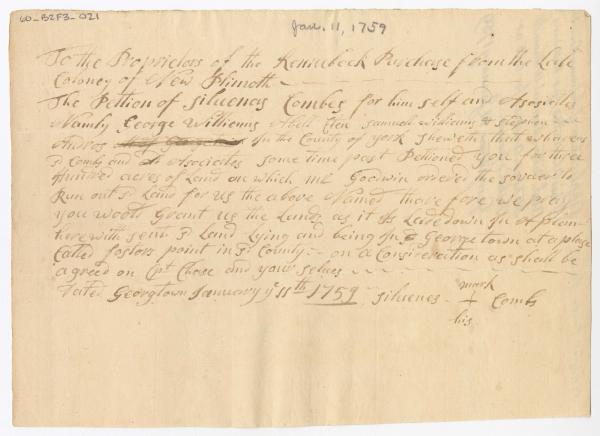 60-B2F3-021
Jan. 11, 1759
To the Proprietors of the Kennebeck Purchase from the Late
Coloney of New Plimoth
The Petion of Siluenas Combes for him self and Asosiates
Namly George Williams Abell Eten Samuel williams & stephen
Andros In the County of york sheweth that whereas
sd Comb and Asociates some time past Petioned you for three
Hundred acres of Land one which mr Goodwin ordered the sovaer to
Run out sd Land for us the above Named thare fore we pray
you woold Grant us the Land as it Is Laredown In A plan
here with sent sd Land Lying and being In Georgetown at a place
Called fosters point In sd County - on a Consideration as shall be
agreed on Cpt Chose and your selues
Dated Georgtown Janewary ye 11th 1759 Siluenes + Comb
mark
his